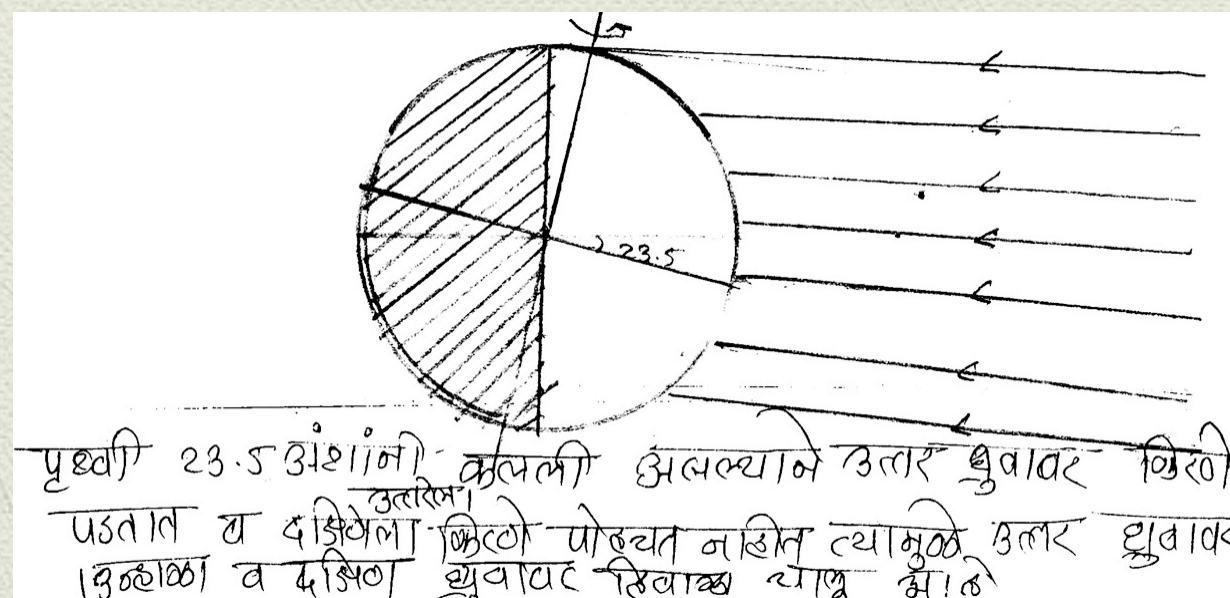 23.5
पृथ्वी 23.5 अंशांनी कललली असल्याने उत्तर ध्रुवावर किरणे
उत्तरेला
पडतात व दक्षिणेला किरणे पोहचत नाहीत त्यामुळे उत्तर ध्रुवावर
उन्हाळा व दक्षिण ध्रुवावर हिवाळा चालू आहे